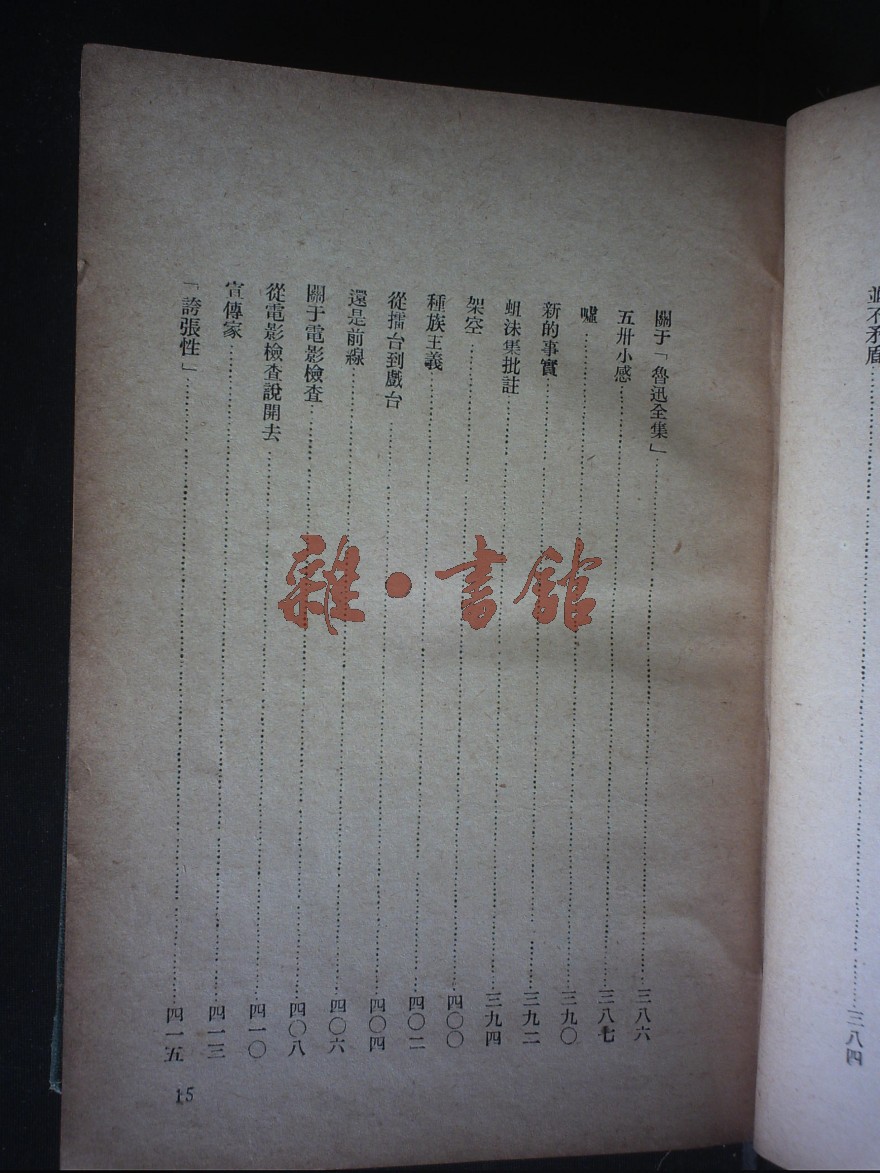 並不矛盾……三八四
關于「魯迅全集」……三八六
五卅小感……三八七
噓……三九〇
新的事實……三九二
蛆沫集批註……三九四
架空……四〇〇
種族主義……四〇二
從擂台到戲台……四〇四
還是前線……四〇六
關于電影檢查……四〇八
從電影檢查說開去……四一〇
宣傳家……四一三
「誇張性」……四一五
15
雜·書館